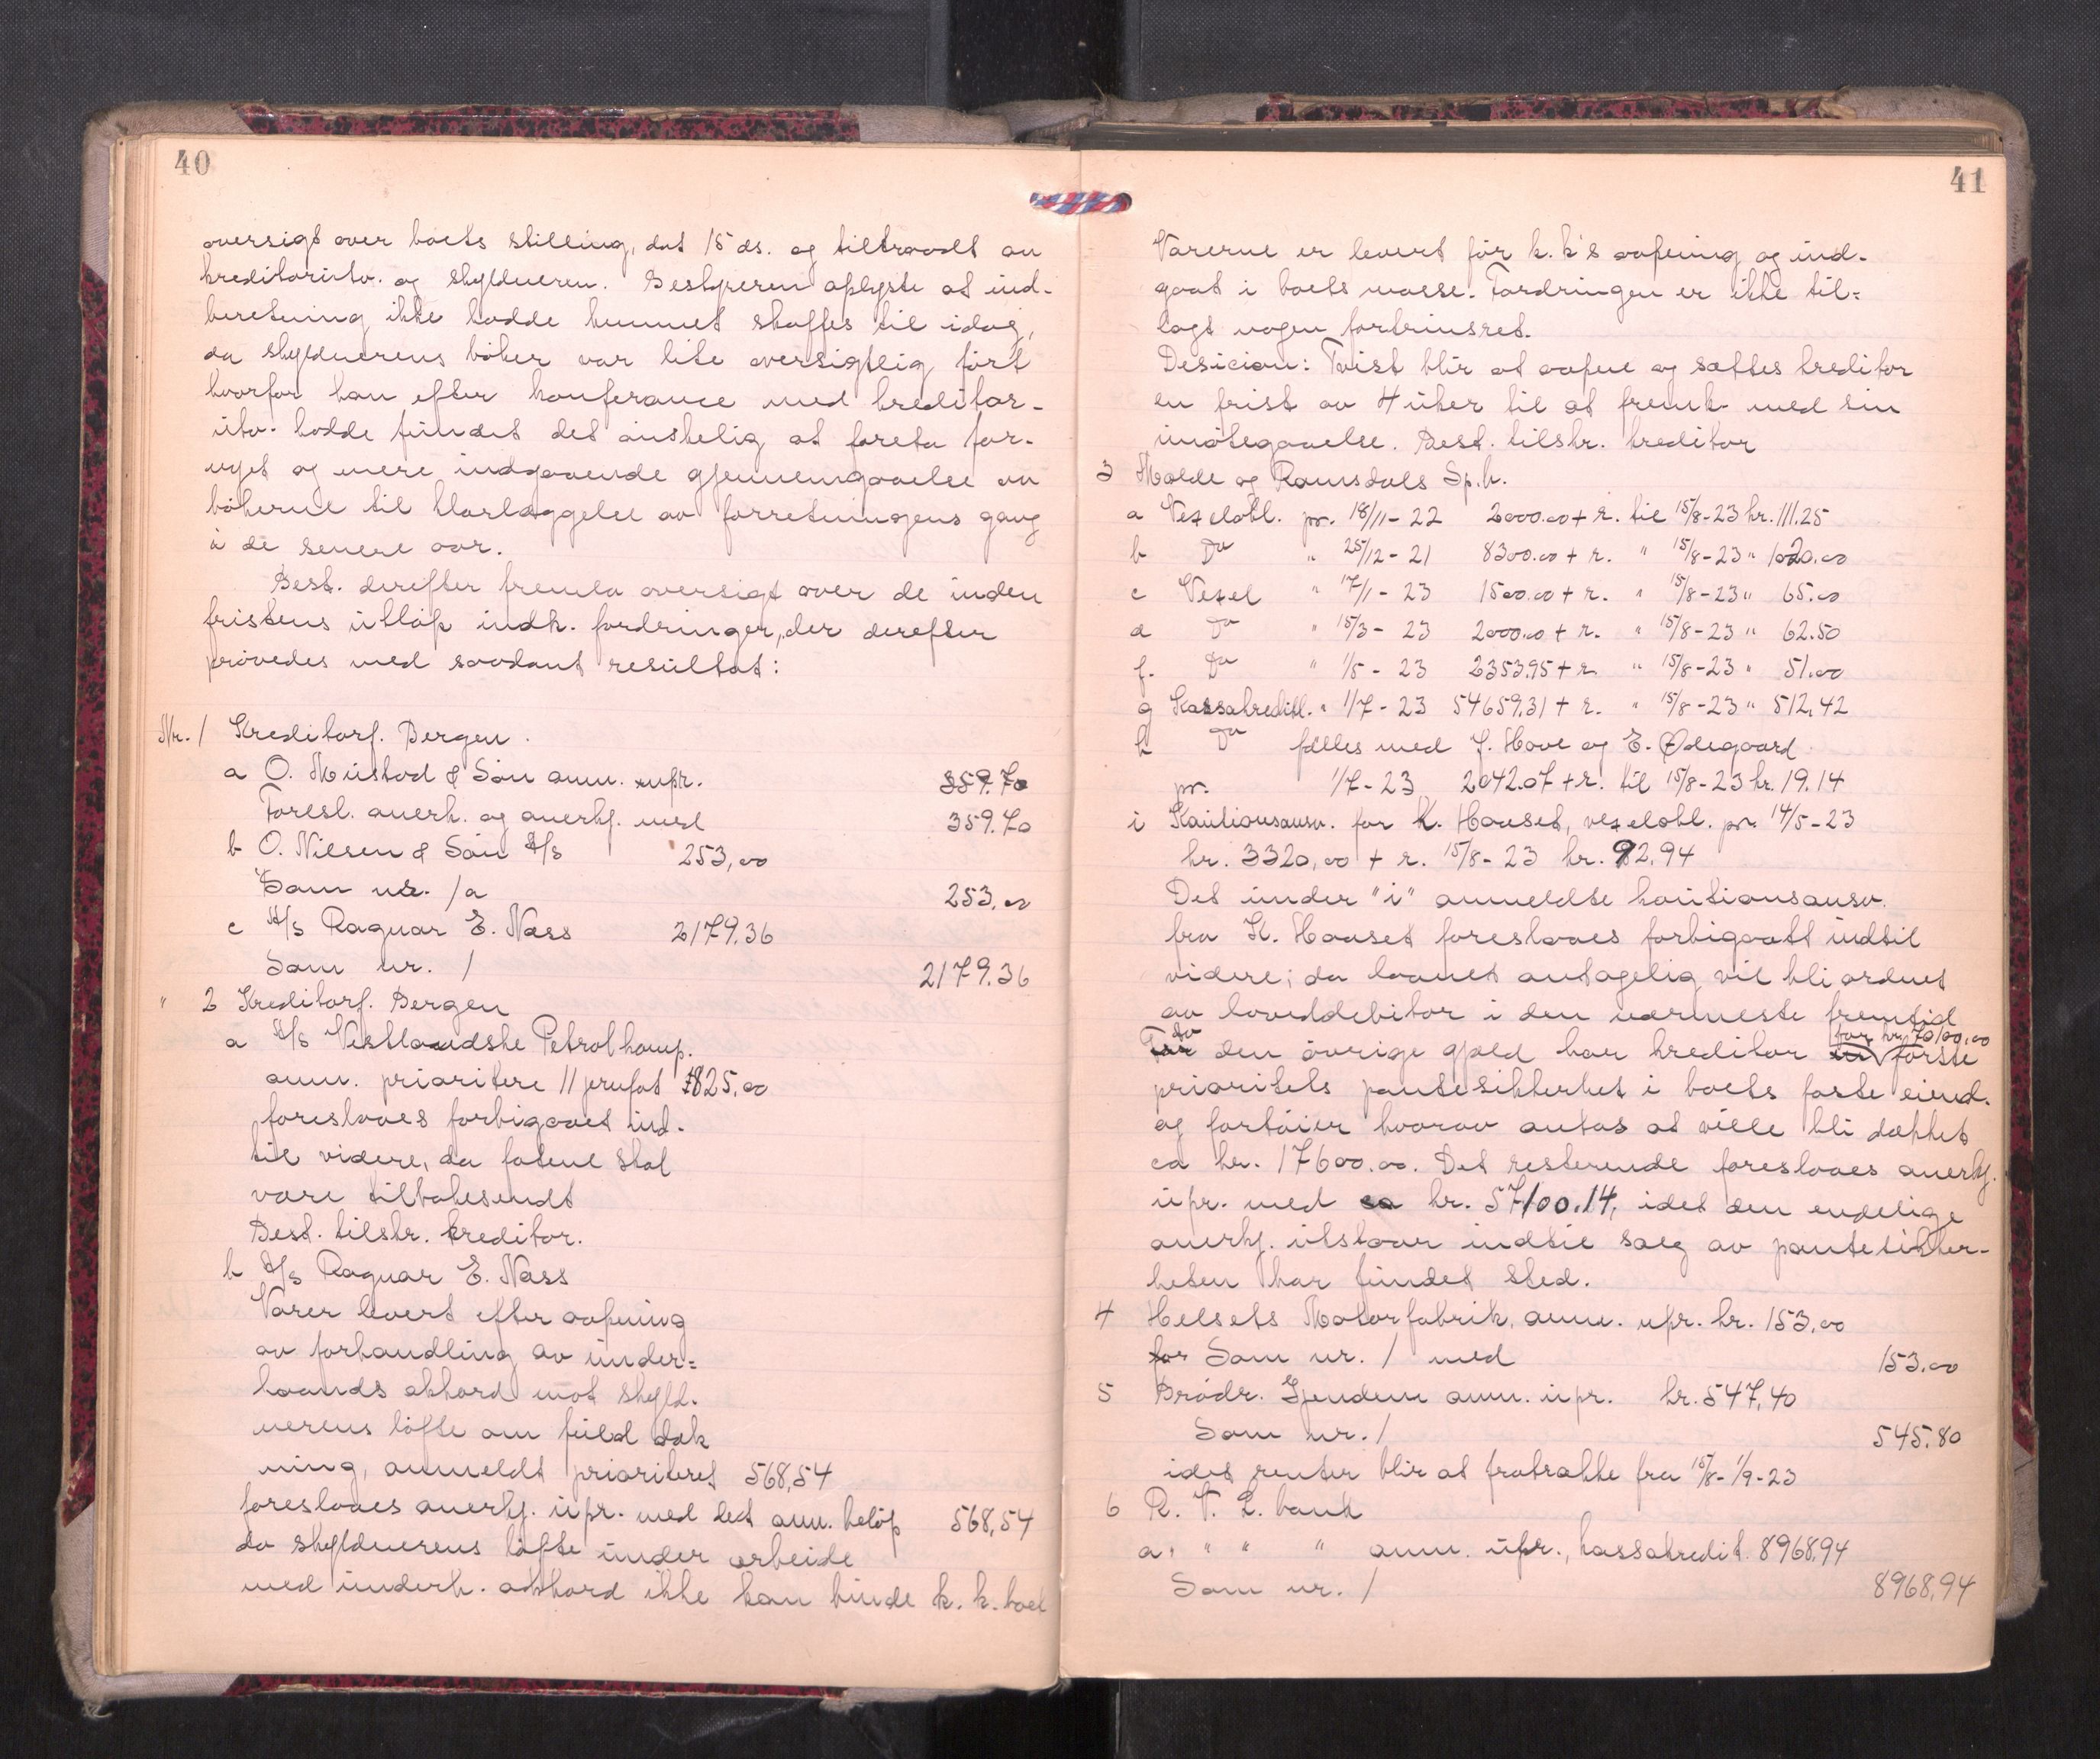 40
oversigt over boets stilling, dat 15 ds. og tiltraadt av
kreditorutv. og skyldneren. Bestyreren oplyste at ind-
beretning ikke hadde kunnet skaffes til idag,
da skyldnerens bøker var lite oversigtlig ført
hvorfor han efter konferance med kreditor-
utv. hadde fundet det ønskelig at foreta for-
nyet og mere indgaaende gjennemgaaelse av
bøkerne til klarlæggelse av forretningens gang
i de senere aar.
Best. derefter fremla oversigt over de inden
fristens utløp indk. fordringer, der derefter
prøvedes med saadant resultat:
Nr. 1 Kreditorf. Bergen.
a O. Mustad & Søn anm. upr. 359.70
Foresl. anerk. og anerkj. med 359.70
b O. Nilsen & Søn A/s 253,00
Som nr. 1a 253.00
c A/s Ragnar E. Næss 2179.36
Som nr. 1 2179.36
" 2 Kreditorf. Bergen
a A/s Vestlandske Petrolkomp.
anm. prioritere 11 jernfat 825.00
foreslaaes forbigaaet ind-
til videre, da fatene skal
være tilbakesendt
Best. tilskr. kreditor.
b A/s Ragnar E. Næss
Varer levert efter aapning
av forhandling av under=
haands akkord mot skyld-
nerens løfte om fuld dæk
ning, anmeldt prioriteret 568,54
foreslaaes anerkj. upr. med det anm. beløp 568,54
da skyldnerens løfte under arbeide
med underh. akkord ikke kan binde k. k. boet
41
Varerne er levert før k. k's aapning og ind-
gaat i boets masse. Fordringen er ikke til=
lagt nogen fortrinsret.
Desicion: Tvist blir at aapne og sættes kreditor
en frist av 4 uker til at fremk. med sin
imøtegaaelse. Best. tilskr. kreditor
3 Molde og Romsdals Sp.b.
a Vexelobl. pr. 18/11-22 2000.00 + r. til 15/8-23 kr. 111.25
b Do " 25/12-21 8300.00 + r. " 15/8-23 " 1020.00
c Vexel " 17/1-23 1500.00 + r. " 15/8-23 " 65.00
d Do " 15/3-23 2000.00 + r. " 15/8-23 " 62.50
f. Do " 1/5-23 2353.95 + r. " 15/8-23 " 51.00
g Kassakreditl. " 1/7-23 54659.31 + r. " 15/8-23 " 512.42
h Do fælles med J. Hove og E. Ødegaard
pr. 1/7-23 2042.07 + r. til 15/8-23 kr. 19.14
i Kautionsansv. for K. Hauset, vexelobl. pr. 14/5-23
kr. 3320,00 + r. 15/8-23 kr. 92.94
Det under "i" anmeldte kautionsansv.
fra K. Hauset foreslaaes forbigaatt indtil
videre; da laanet antagelig vil bli ordnet
av hoveddebitor i den nærmeste fremtid
for kr. 70100.00
For den øvrige gjæld har kreditor første
prioritets pantesikkerhet i boets faste eiend.
og fartøier hvorav antas at ville bli dækket
ca kr. 17600.00. Det resterende foreslaaes anerkj.
upr. med kr. 57100.14, idet den endelige
anerkj. utstaar indtil salg av pantesikker-
heten har fundet sted.
4 Helsets Motorfabrik, anm. upr. kr. 153,00
Som nr. 1 med 153.00
5 Brødr. Gjendem anm. upr. kr. 547,40
Som nr. 1 545.80
idet renter blir at fratrække fra 15/8-1/9-23
6 R. V. L. bank
a. " " " anm. upr., kassakredit. 8968.94
Som nr. 1 8968.94